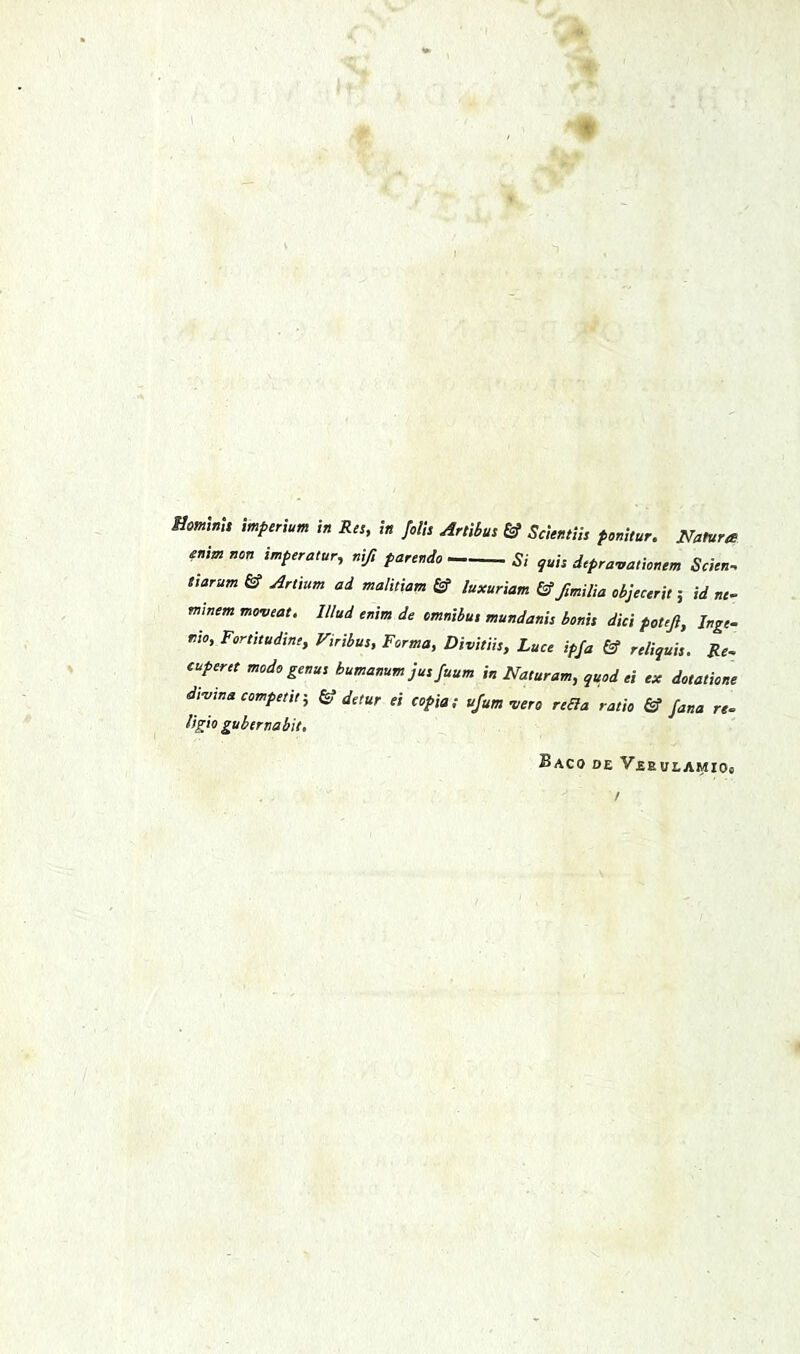 Hominis imperium in Res, in ſolis Artibus & Scientiis ponitur. Naturæ
enim non imperatur, niſi parendo —— Si quis depravationem Scien-
tiarum & Artium ad malitiam & luxuriam & ſimilia objecerit; id ne-
minem moveat. Illud enim de omnibus mundanis bonis dici poteſt, Inge-
nio, Fortitudine, Viribus, Forma, Divitiis, Luce ipſa & reliquis. Re-
cuperet modo genus humanum jus ſuum in Naturam, quod ei ex dotatione
divina competit; & detur ei copia: uſum vero recta ratio & ſana re-
ligio gubernabit.
BACO DE VERULAMIO.